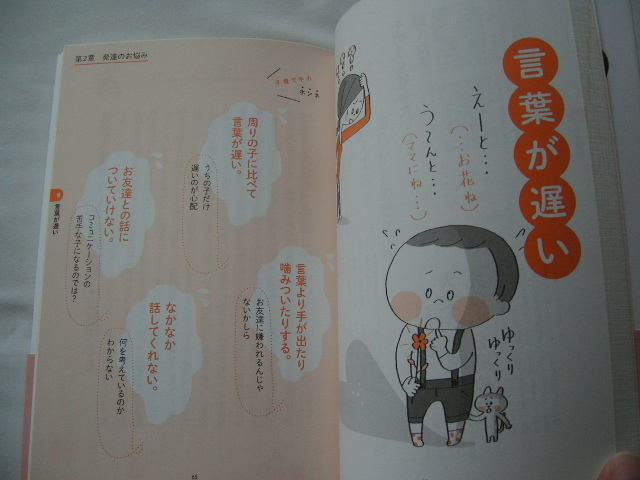 言葉が遅い
えーと…
(…お花ね)
うーんと…
(ママにね…)
ゆっくり
ゆっくり
第2章 発達のお悩み
子育て中の
ホンネ
周りの子に比べて
言葉が遅い。
うちの子だけ
遅いのが心配
お友達との話に
ついていけない。
コミュニケーションの
苦手な子になるのでは?
言葉より手が出たり
噛みついたりする。
お友達に嫌われるんじゃ
ないかしら
なかなか
話してくれない。
何を考えているのか
わからない
言葉が遅い